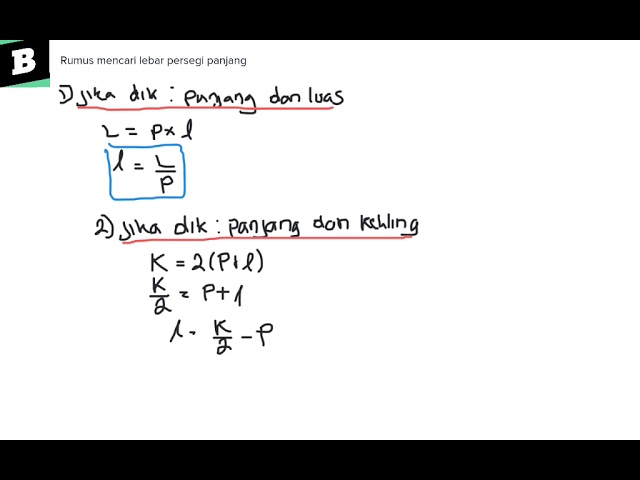 B
Rumus mencari lebar persegi panjang
1) Jika dik : panjang dan luas
L = P x l
l = L/P
2) Jika dik : panjang dan keliling
K = 2(P+l)
K/2 = P+l
l = K/2 - P